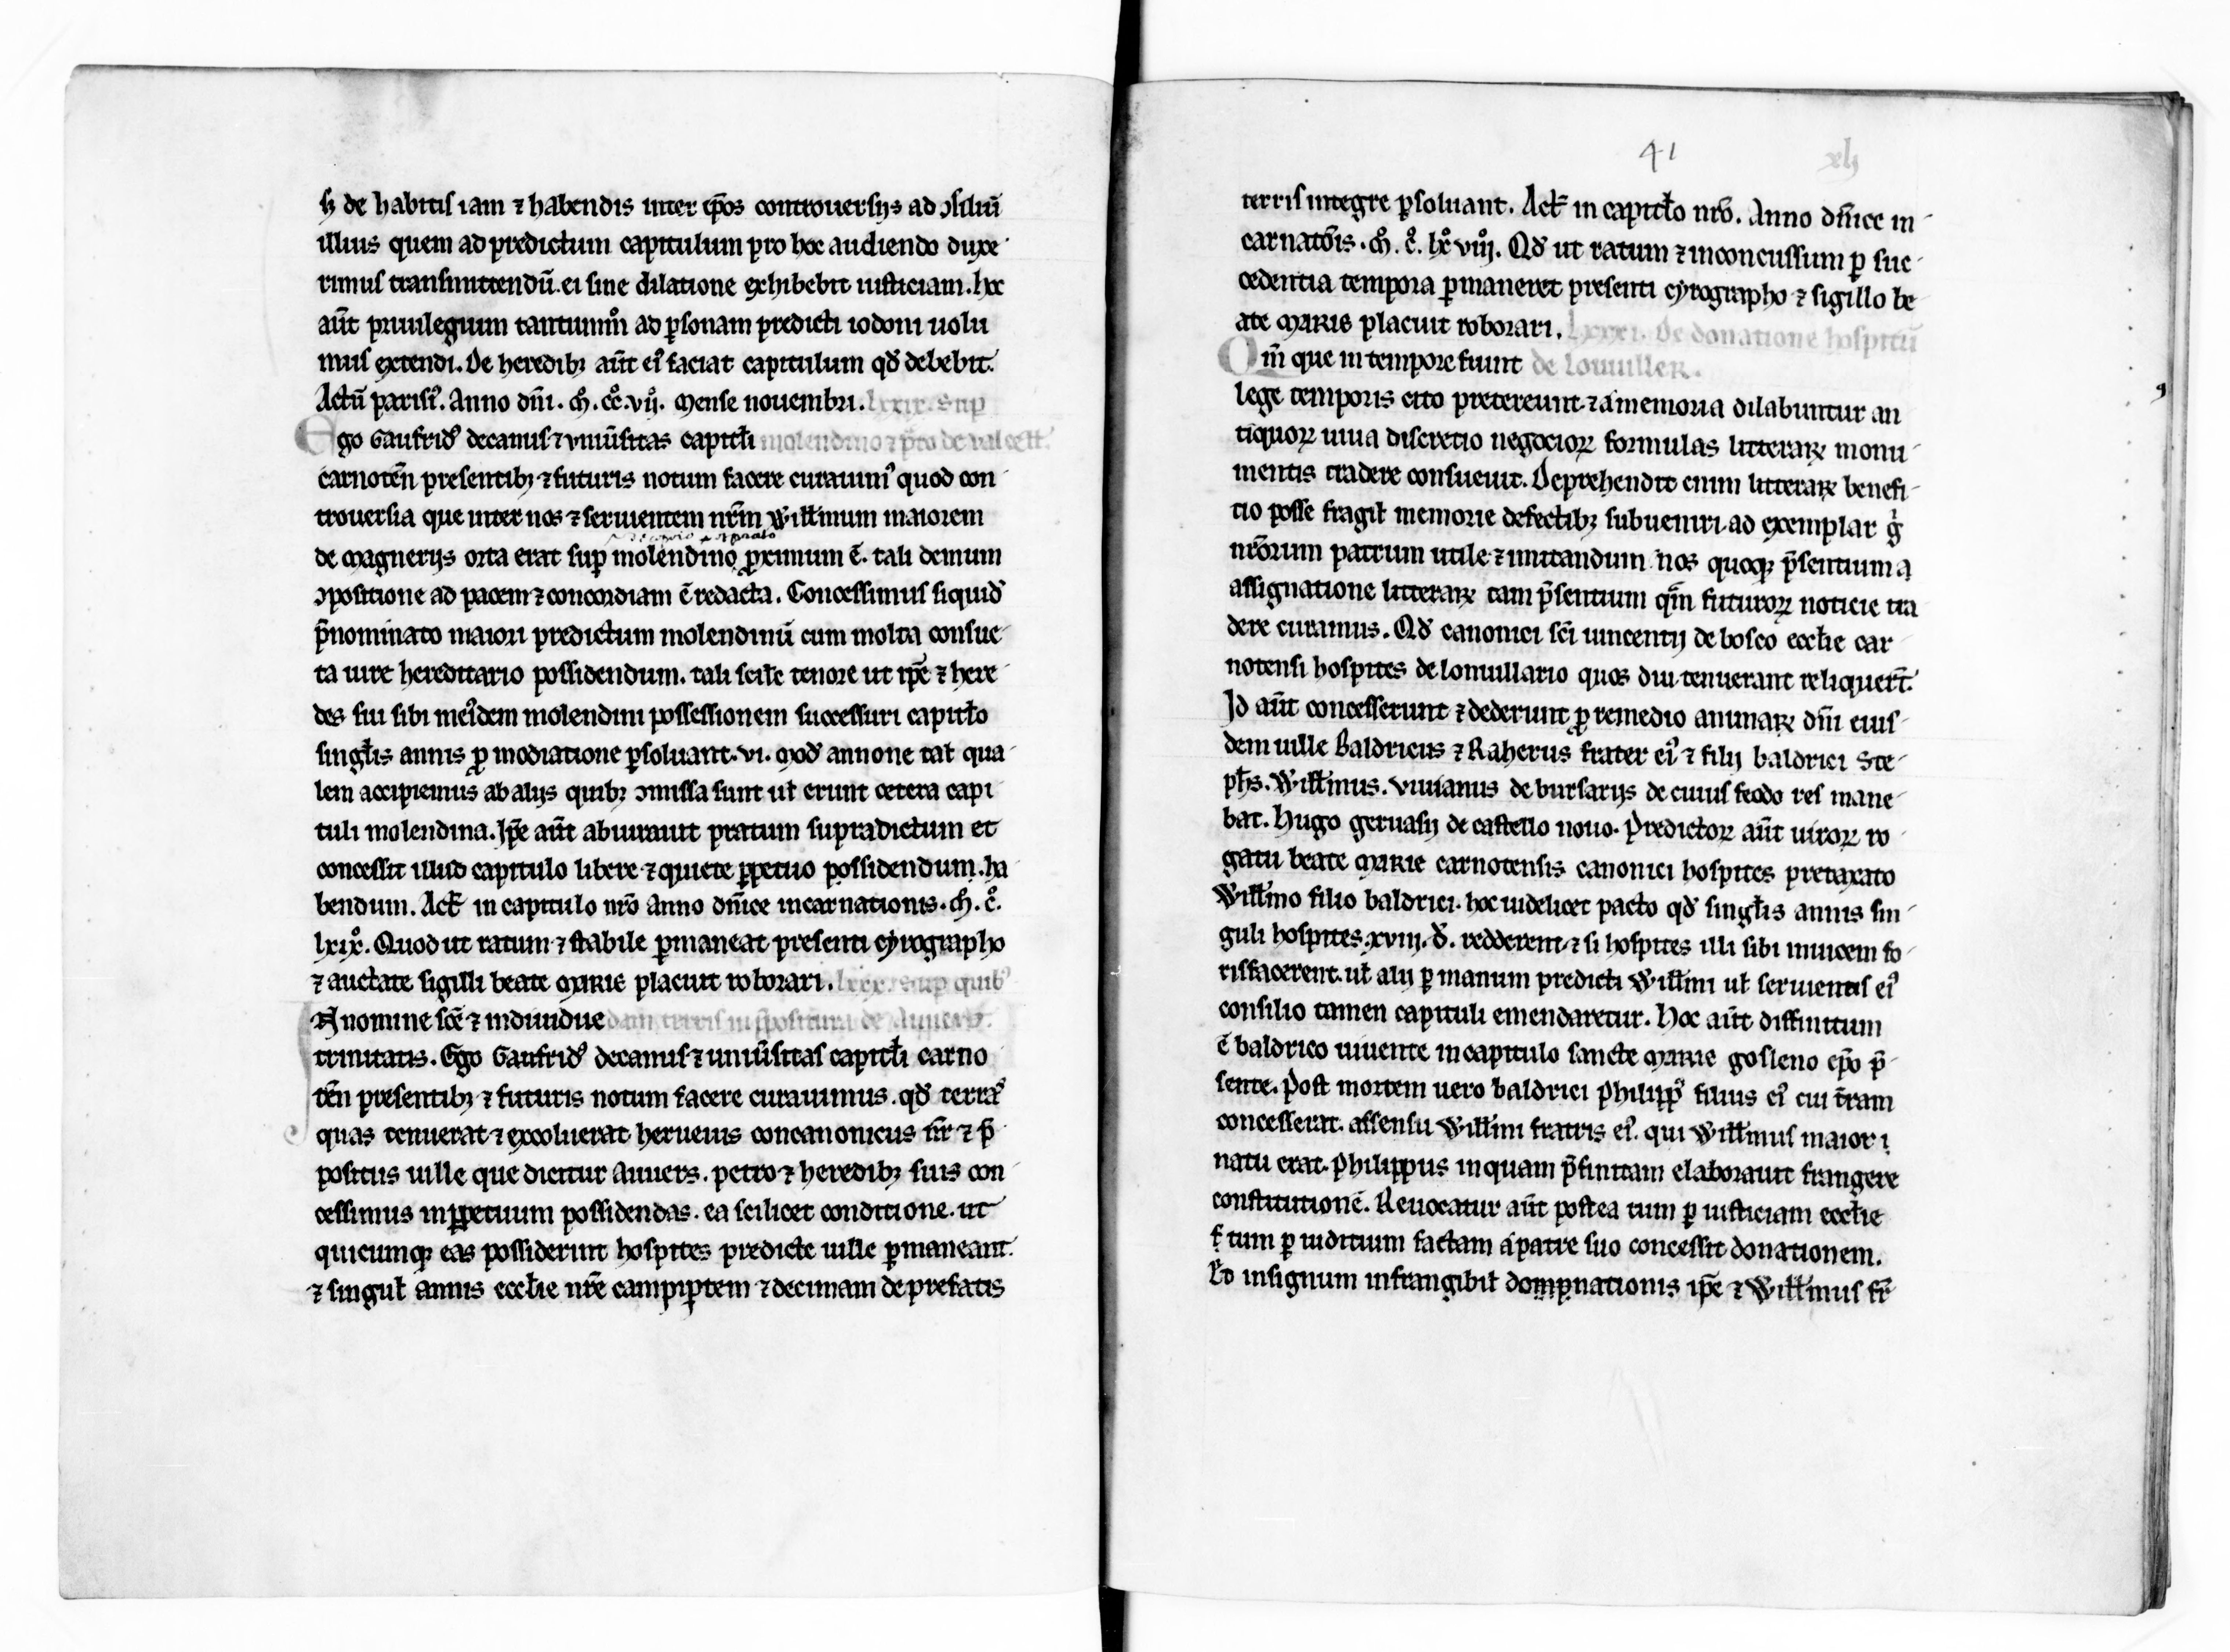 sꝫ de habitis iam ⁊ habendis inter ip̄os controuersijs ad ↄsiliū
illius quem ad predictum capitulum pro hoc audiendo duxe
rimus transmittendū. ei sine dilatione exhibebit iusticiam. hoc
aūt priuilegium tantummͦ ad ꝑsonam predicti iodoni uolu
mus extendi. De heredibꝫ aūt eiꝰ faciat capitulum qd̓ debebit.
Actū parisiꝰ. Anno dn̄i. ꝳ. cͦcͦ. vijͦ. Mense nouembri. lxxix. Suꝑ
Ego Gaufridꝰ decanus ⁊ vniūsitas capitl̓i molendino ⁊ p̄to de ualcell̓.
carnoteñ presentibꝫ ⁊ futuris notum facere curauimꝰ quod con
trouersia que inter nos ⁊ seruientem nr̄m Willl̓mum maiorem
de Magnerijs orta erat suꝑ molendino ꝓximum ē. tali demum
ↄpositione ad pacem ⁊ concordiam ē redacta. Concessimus siquid̓
p̄nominato maiori predictum molendinū cum molta consue
ta iure hereditario possidendum. tali scil̓c tenore ut ip̄e ⁊ here
des sui sibi in eiꝰdem molendini possessionem successuri capitl̓o
singl̓is annis ꝓ modiatione ꝑsoluant. vi. mod̓ annone tal̓ qua
lem accipiemus ab alijs quibꝫ ↄmissa sunt ul̓ erunt cetera capi
tuli molendina. Ip̄e aūt abiurauit pratum supradictum et
concessit illud capitulo libere ⁊ quiete ꝑpetuo possidendum. ha
bendum. Act̓ in capitulo nr̄o Anno dn̄ice incarnationis. ꝳ. cͦ.
lxixͦ. Quod ut ratum ⁊ stabile ꝑmaneat presenti cyrographo
⁊ auctate sigilli beate MARIE placuit roborari. lxxx. Suꝑ quibꝰ
In nomine sc̄e ⁊ indiuidue dam terris in p̄positura de Auuers.
trinitatis. Ego Gaufridꝰ decanus ⁊ uniūsitas capitl̓i carno
teñ presentibꝫ ⁊ futuris notum facere curauimus. qd̓ terras
quas tenuerat ⁊ excoluerat herueius concanonicus nr̄ ⁊ p̄
positus uille que dicitur Auuers. petro ⁊ heredibꝫ suis con
cessimus in ꝑpetuum possidendas. ea scilicet conditione. ut
quicumqꝫ eas possiderint hospites predicte uille ꝑmaneant.
⁊ singul̓ annis eccl̓ie nr̄e campiꝑtem ⁊ decimam de prefatis
41 xlj
terris integre ꝑsoluant. Act̓ in capitl̓o nr̄o. Anno dn̄ice in
carnatōis. ꝳ. cͦ. lxͦ viijͦ. Qd̓ ut ratum ⁊ inconcussum ꝑ suc
cedentia tempora ꝑmaneret presenti cyrographo ⁊ sigillo be
ate MARIE placuit roborari. lxxxi. De donatione hospitū
Qm̄ que in tempore fiunt de Louuiller.
lege temporis cito pretereunt ⁊ a memoria dilabuntur an
tiquoꝝ uiua discretio negocioꝝ formulas litteraꝝ monu
mentis tradere consueuit. Deprehendit enim litteraꝝ benefi
cio posse fragil̓ memorie defectibꝫ subueniri. ad exemplar g̓
nr̄orum patrum utile ⁊ imitandum nos quoqꝫ p̄sentium a
assignatione litteraꝝ tam p̄sentium qm̄ futuroꝝ noticie tra
dere curamus. Qd̓ canonici sc̄i uincentij de bosco eccl̓ie car
notensi hospites de lonuillario quos diu tenuerant reliquert̄.
Id aūt concesserunt ⁊ dederunt ꝓ remedio animaꝝ dn̄i eius
dem uille Baldricus ⁊ Raherus frater eiꝰ ⁊ filij baldrici Ste
ph̓s. Willl̓mus. Viuianus de bursarijs de cuius feodo res mane
bat. Hugo geruasij de castello nouo. Predictoꝝ aūt uiroꝝ ro
gatu beate MARIE carnotensis canonici hospites pretaxato
Willl̓mo filio baldrici. hoc uidelicet pacto qd̓ singl̓is annis sin
guli hospites. xviij. d̓. redderent. ⁊ si hospites illi sibi inuicem fo
risfacerent. ul̓ alij ꝑ manum predicti Willl̓mi ul̓ seruientis eiꝰ
consilio tamen capituli emendaretur. Hoc aūt diffinitum
ē baldrico uiuente in capitulo sancte MARIE gosleno ep̄o p̄
sente. Post mortem uero baldrici Philippꝰ filius eiꝰ cui tr̄am
concesserat. assensu Willl̓mi fratris eiꝰ. qui Willl̓mus maior
natu erat. Philippus inquam p̄finitam elaborauit frangere
constitutionē. Reuocatur aūt postea tum ꝑ iusticiam eccl̓ie
tum ꝑ iuditium factam a patre suo concessit donationem.
Et in signum infrangibil̓ donationis ip̄e ⁊ Willl̓mus fr̄